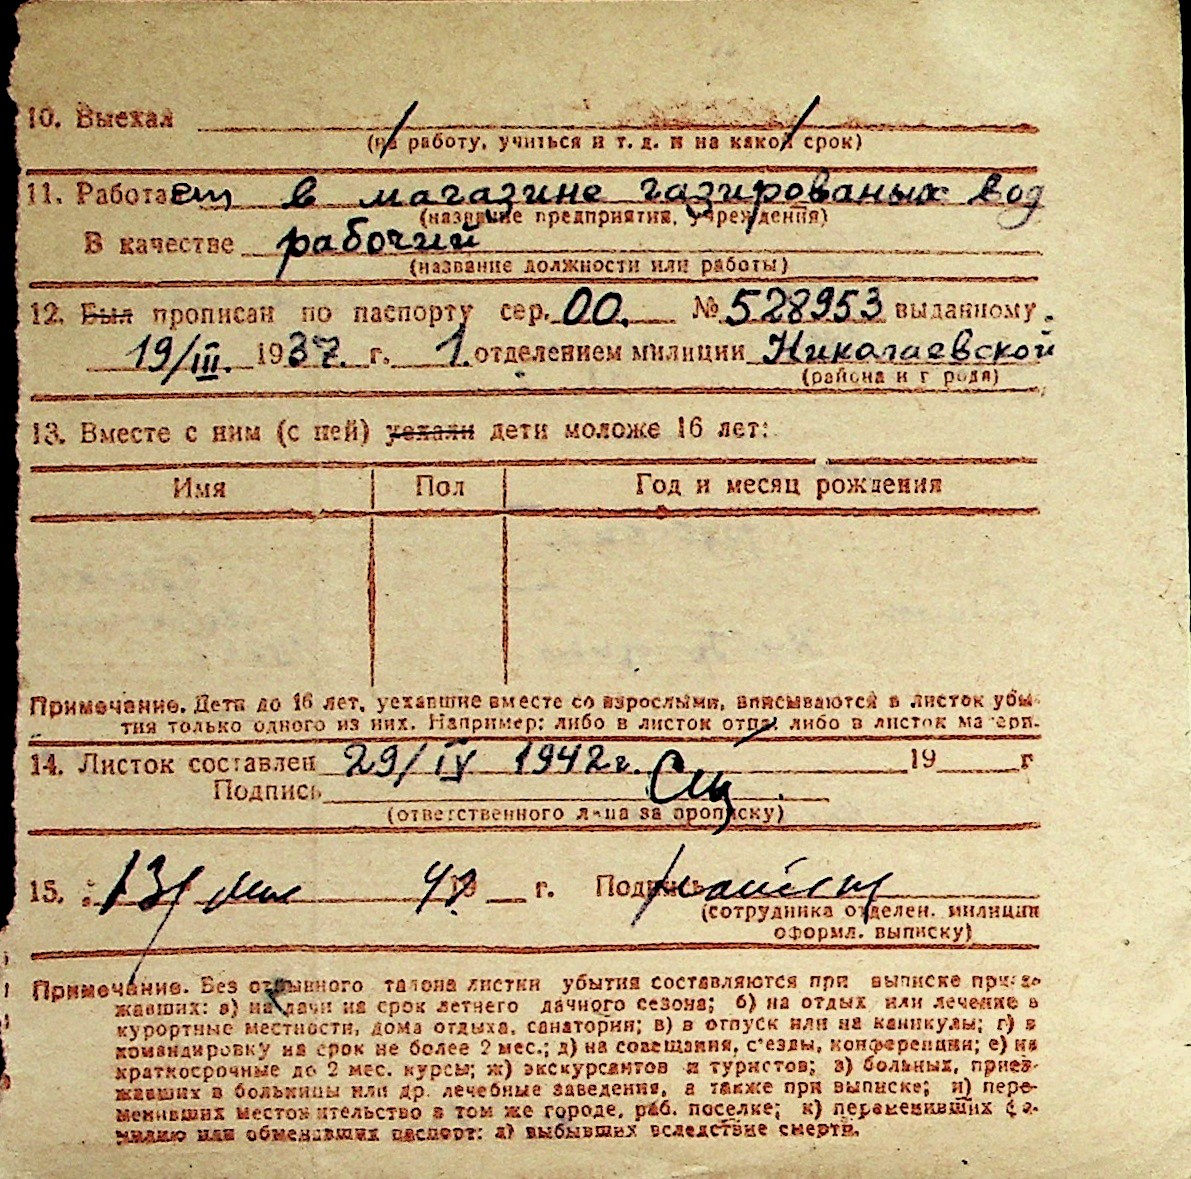 10. Выехал
(на работу, учиться и т. д. и на какой срок)
11. Работает в магазине газированых вод
(название предприятия, учреждения)
В качестве рабочий
(название должности или работы)
12. Был прописан по паспорту сер. 00. № 528953 выданному
19/III. 1937. г. 1. отделением милиции Николаевской
(района и г рода)
13. Вместе с ним (с ней) уехали дети моложе 16 лет:
Имя Пол Год и месяц рождения
Примечание. Дети до 16 лет, уехавшие вместе со взрослыми, вписываются в листок убы-
тия только одного из них. Например: либо в листок отца, либо в листок матери.
14. Листок составлен 29/IV 1942г. 19 г
Подпись
(ответственного лица за прописку)
15. 13/ 19 г. Подпись
(сотрудника отделен. милиции
оформл. выписку)
Примечание. Без отрывного талона листки убытия составляются при выписке приез-
жавших: а) на дачи на срок летнего дачного сезона; б) на отдых или лечение в
курортные местности, дома отдыха, санатории; в) в отпуск или на каникулы; г) в
командировку на срок не более 2 мес.; д) на совещания, с'езды, конференции; е) на
краткосрочные до 2 мес. курсы; ж) экскурсантов и туристов; з) больных, приез-
жавших в больницы или др. лечебные заведения, а также при выписке; и) пере-
менивших местожительство в том же городе, раб. поселке; к) переменивших фа-
милию или обменявших паспорт: л) выбывших вследствие смерти.